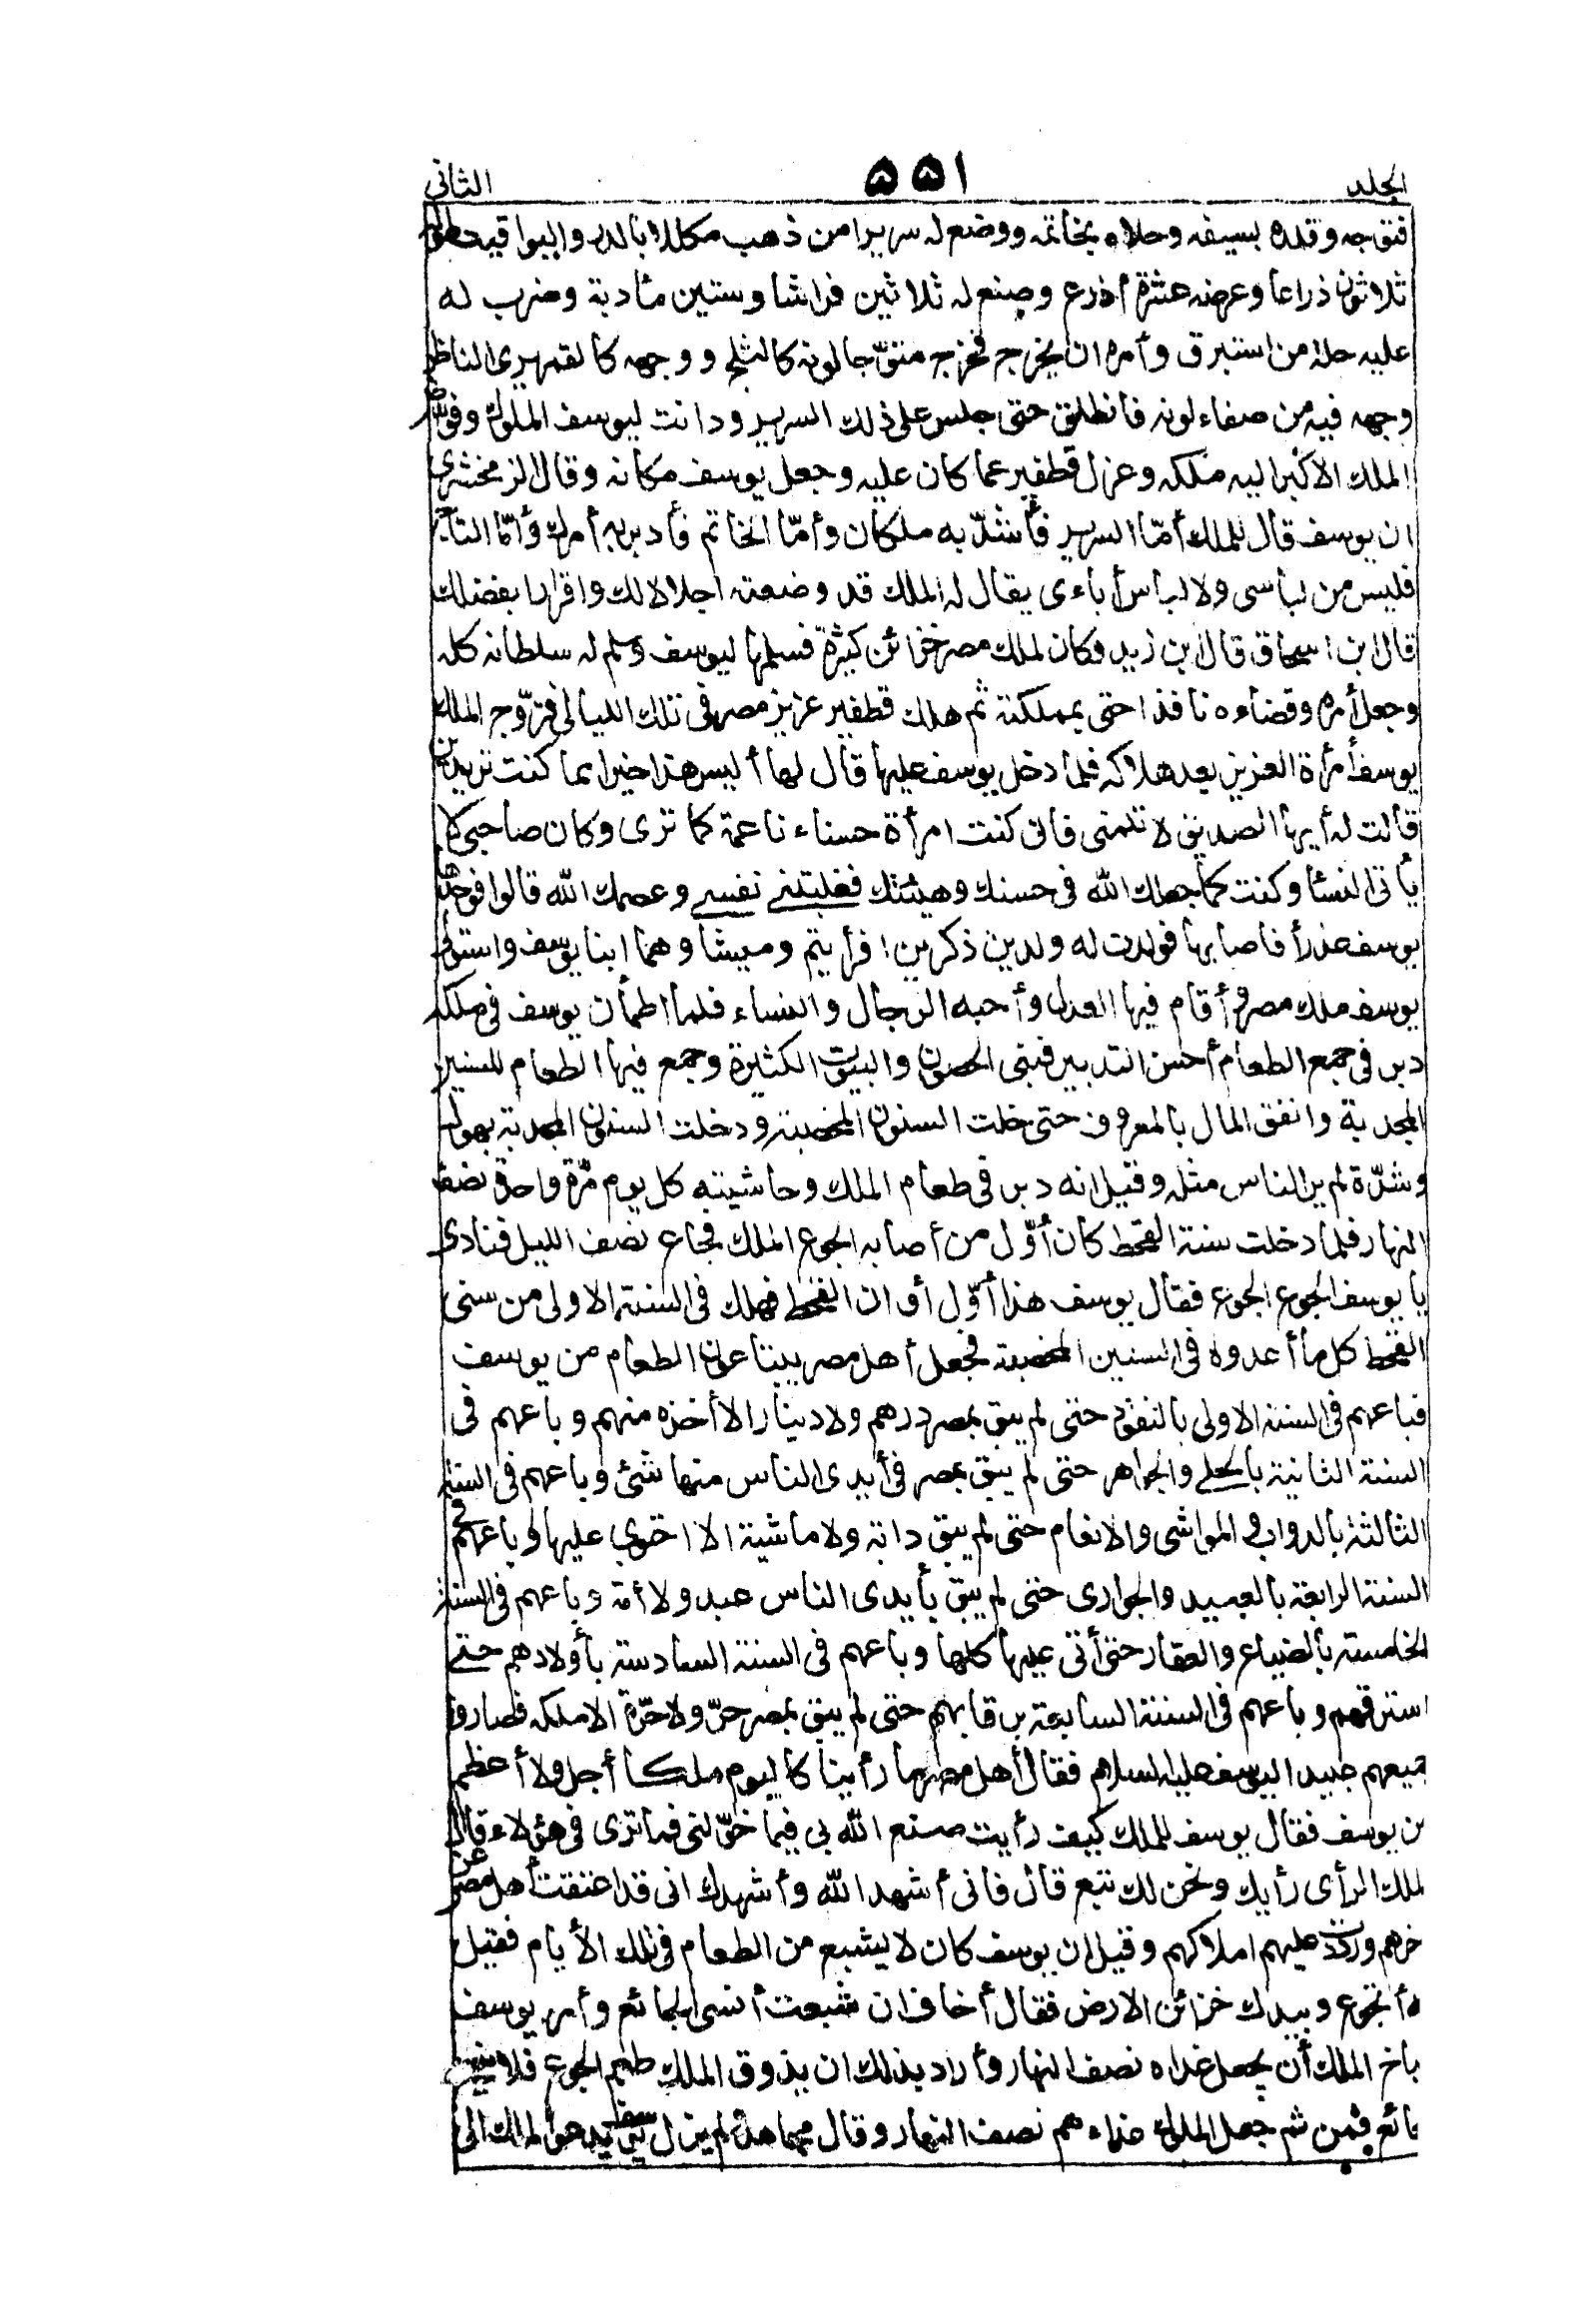 الجلد ٥٥١ الثاني
فتوجه وقلده بسيفه وحلاه بخاتمه ووضع له سريرا من ذهب مكللا بالدر واليواقيت طوله
ثلاثون ذراعا وعرضه عشرة أذرع وصنع له ثلاثين فراشا وستين مأدبة وضرب له
عليه حلة من استبرق وأمره ان يخرج فخرج متوّجا لونه كالثلج ووجهه كالقمر يرى الناظر
وجهه فيه من صفاء لونه فانطلق حتى جلس على ذلك السرير ودانت ليوسف الملوك وفوّض
الملك الاكبر اليه ملكه وعزل قطفير عما كان عليه وجعل يوسف مكانه وقال الزمخشري
ان يوسف قال للملك أمّا السرير فأشدّ به ملكك وأمّا الخاتم فأدبر به أمرك وأمّا التاج
فليس من لباسى ولا لباس أباءى يقال له الملك قد وضعته اجلالا لك واقرارا بفضلك
قال ابن اسحاق قال ابن زيد فكان لملك مصر خزائن كثيرة فسلمها ليوسف وسلم له سلطانه كله
وجعل أمره وقضاءه نافذا حتى بمملكته ثم هلك قطفير عزيز مصر فى تلك الليالى فزوّج الملك
يوسف أمرأة العزيز بعد هلاكه فلما دخل يوسف عليها قال لها أليس هذا خيرا مما كنت تريدين
قالت له أيها الصديق لا تلمنى فانى كنت امرأة حسناء ناعمة كما ترى وكان صاحبى لا
يأتى النسا وكنت كما جعلك الله فى حسنك وهيئتك فغلبتنى نفسى وعصمك الله قالوا فوجدها
يوسف عذرأ فاصابها فولدت له ولدين ذكرين افرأيتم وميشا وهما ابنا يوسف واستولى
يوسف ملك مصر وأقام فيها العدل وأحبه الرجال والنساء فلما اطمأن يوسف فى ملكه
دبر فى جمع الطعام أحسن التدبير فبنى الحصون والبيوت الكثيرة وجمع فيها الطعام للسنين
المجدبة وانفق المال بالمعروف حتى خلت السنون المخصبة ودخلت السنون المجدبة بهول
وشدّة لم ير الناس مثله وقيل انه دبر فى طعام الملك وحاشيته كل يوم مرّة واحدة نصف
النهار فلما دخلت سنة القحط كان أوّل من أصابه الجوع الملك فجاع نصف الليل فنادى
يا يوسف الجوع الجوع فقال يوسف هذا أوّل أوان القحط فهلك فى السنة الاولى من سنى
القحط كل ما أعدوه فى السنين المخصبة فجعل أهل مصر يبتاعون الطعام من يوسف
فباعهم فى السنة الاولى بالنقود حتى لم يبق بمصر درهم ولا دينار الا أخذه منهم وباعهم فى
السنة الثانية بالحلى والجواهر حتى لم يبق بمصر فى أيدى الناس منها شئ وباعهم فى السنة
الثالثة بالدواب والمواشى والانعام حتى لم يبق دابة ولا ماشية الا احتوى عليها وباعهم فى
السنة الرابعة بالعبيد والجوارى حتى لم يبق بأيدى الناس عبد ولا أمة وباعهم فى السنة
الخامسة بالضياع والعقار حتى أتى عليها كلها وباعهم فى السنة السادسة بأولادهم حتى
استرقهم وباعهم فى السنة السابعة برقابهم حتى لم يبق بمصر حرّ ولا حرّة الا ملكه فصاروا
جميعهم عبيدا ليوسف عليه السلام فقال أهل مصر ما رأينا كاليوم ملكا أجل ولا أعظم
من يوسف فقال يوسف للملك كيف رأيت صنع الله بى فيما خوّلنى فما ترى فى هؤلاء قال
لملك الرأى رأيك ونحن لك تبع قال فانى أشهد الله وأشهدك انى قد اعتقت أهل مصر عن
خرهم ورددت عليهم املاكهم وقيل ان يوسف كان لا يشبع من الطعام فى تلك الأيام فقيل
ه أتجوع وبيدك خزائن الارض فقال أخاف ان شبعت أنسى الجائع وأمر يوسف
باخ الملك أن يجعل غداه نصف النهار وأراد بذلك ان يذوق الملك طعم الجوع فلا ينسى
جائع فمن ثم جعل الملوك غداءهم نصف النهار وقال مجاهد لم يزل يوسف يدعو الملك الى